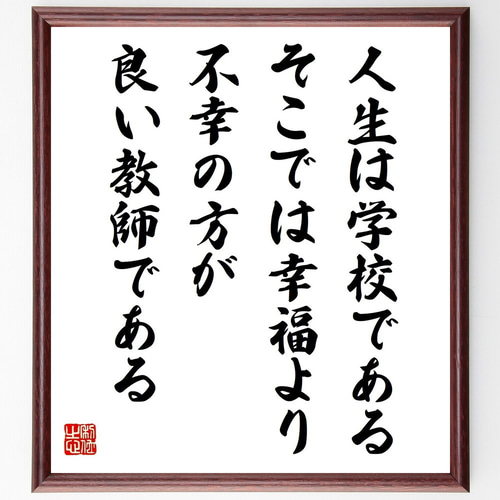 人生は学校である
そこでは幸福より
不幸の方が
良い教師である